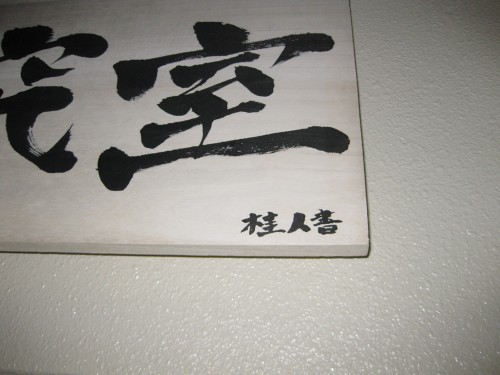 室
桂人書